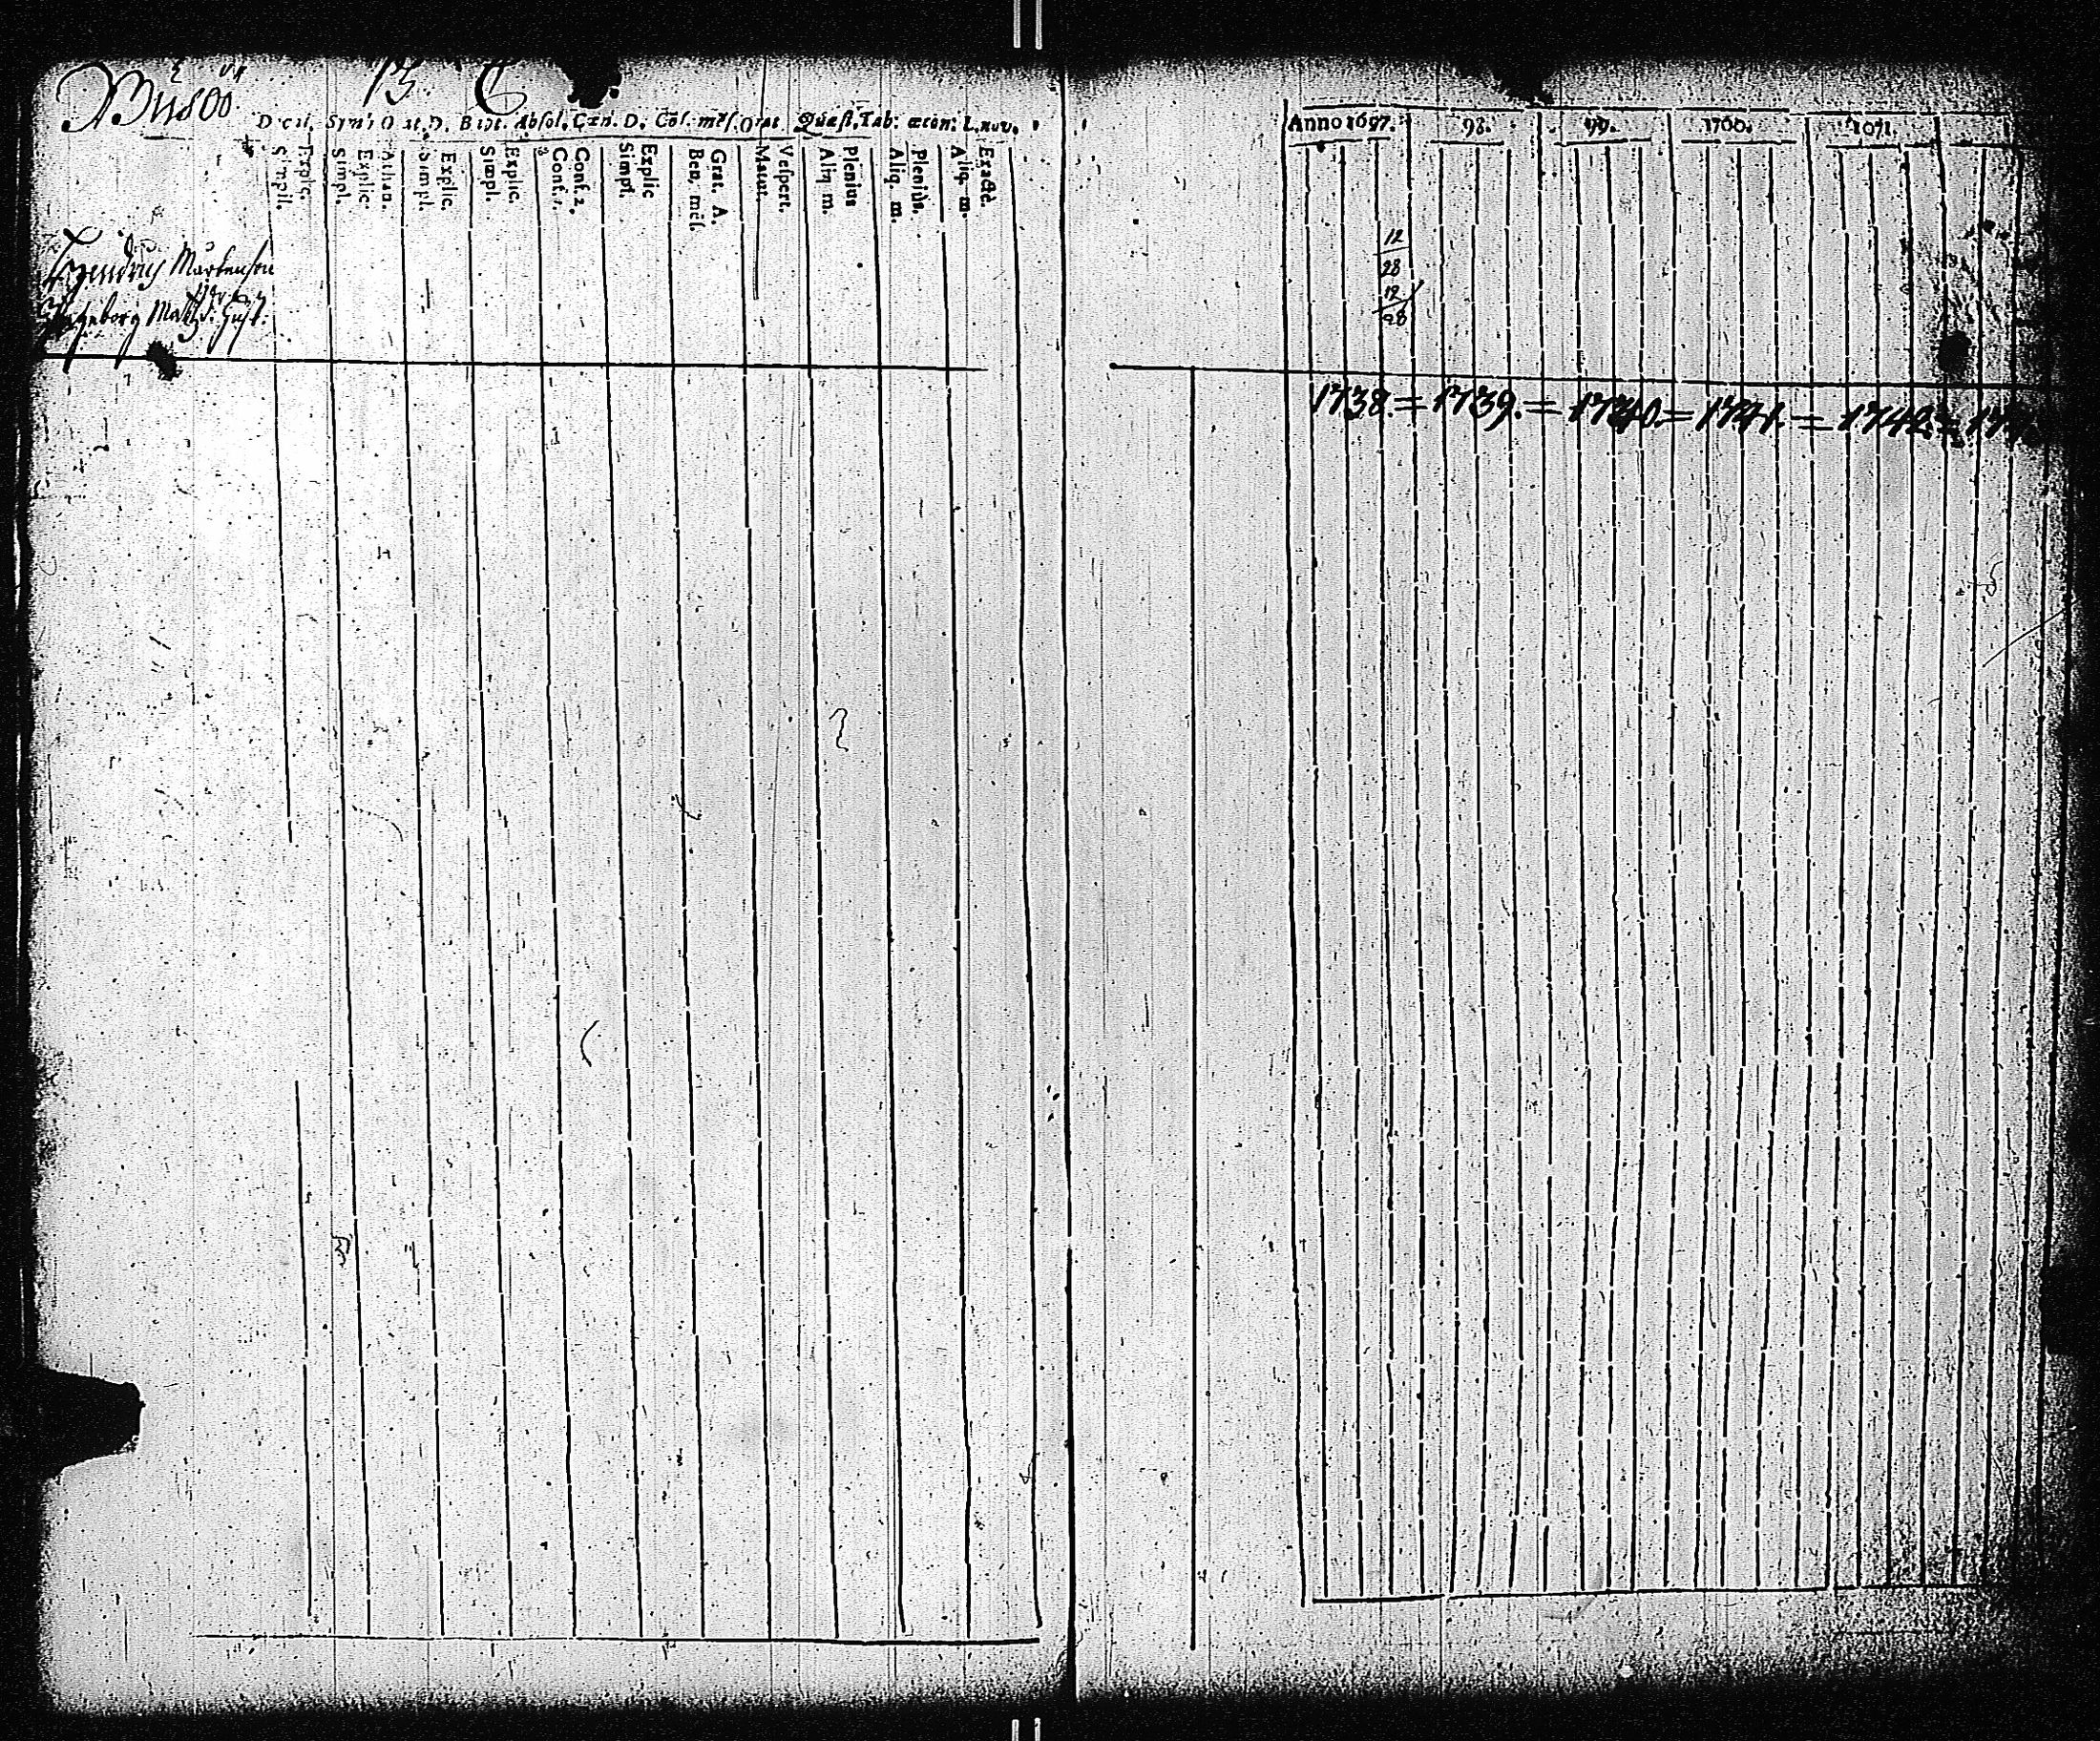 13
Decal. Symb. Orat. D. Bapt. Absol. Cæn. D. Cös. mēs. Orat Quæst. Tab: œcon: L. nov.
Explic. Simpl. Athan. Explic. Simpl. Explic. Simpl. Explic. Simpl. Conf. 2. Conf. 1. Explic Simpl. Grat. A. Ben. mēs. Vespert. Matut. Plenius Aliq. m. Plenius. Aliq. m. Exacte. Aliq. m.
Hendrich Mårtenson
Ingeborg Matzd. Hust.
Anno 1697. 98. 99. 1700. 1071.
12
28
12
28
1738. = 1739. = 1740. = 1741. = 1742. = 17